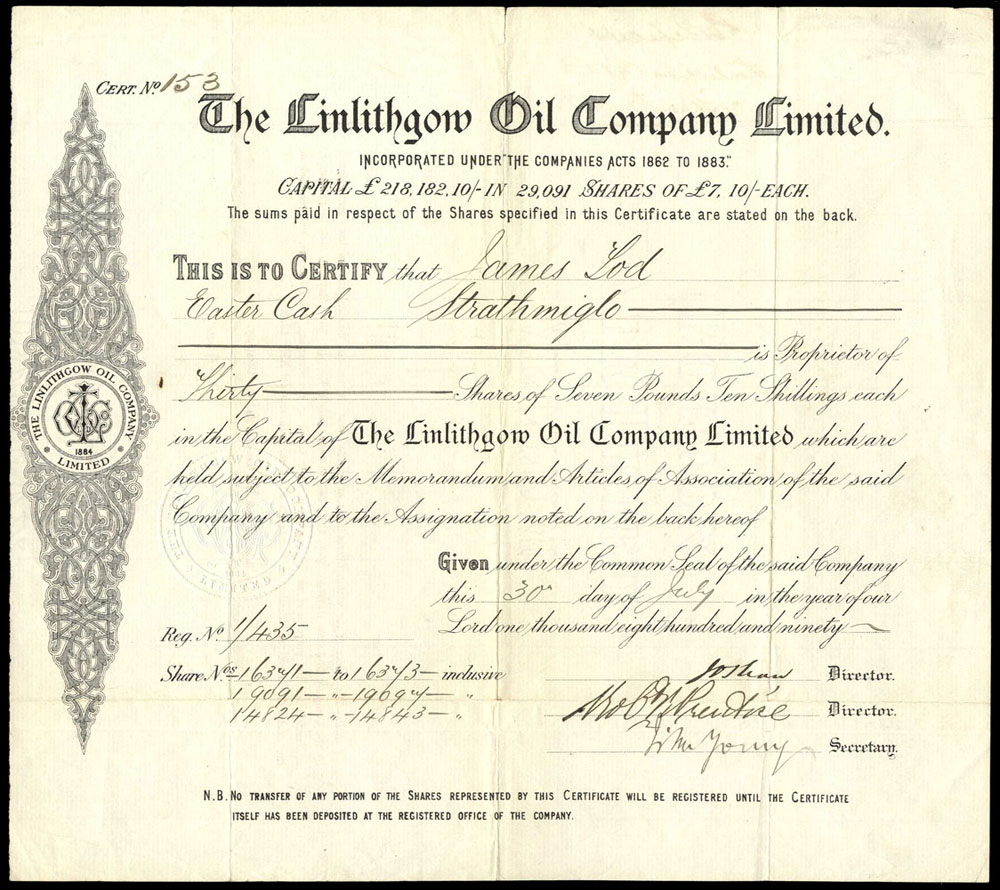 CERT. Nº 153
The Linlithgow Oil Company Limited.
INCORPORATED UNDER "THE COMPANIES ACTS 1862 TO 1883."
CAPITAL £218,182,10/- IN 29,091 SHARES OF £7,10/- EACH.
The sums paid in respect of the Shares specified in this Certificate are stated on the back.
THIS IS TO CERTIFY that James Tod
Easter Cash Strathmiglo
is Proprietor of
Thirty Shares of Seven Pounds Ten Shillings each
in the Capital of The Linlithgow Oil Company Limited which are
held subject to the Memorandum and Articles of Association of the said
Company and to the Assignation noted on the back hereof
Given under the Common Seal of the said Company
this 30th day of July in the year of our
Lord one thousand eight hundred and ninety
Reg. Nº 1/435
Share Nos 16371 to 16373 inclusive
19091 - " - 19097 - "
14824 - " - 14843 - "
Director.
Director.
John Young Secretary.
N.B. NO TRANSFER OF ANY PORTION OF THE SHARES REPRESENTED BY THIS CERTIFICATE WILL BE REGISTERED UNTIL THE CERTIFICATE
ITSELF HAS BEEN DEPOSITED AT THE REGISTERED OFFICE OF THE COMPANY.
THE LINLITHGOW OIL COMPANY
1884
LIMITED